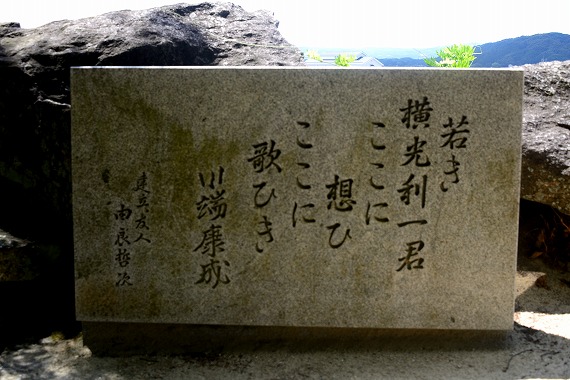 若き
横光利一君
ここに
想ひ
ここに
歌ひき
川端康成
建立友人
由良哲次